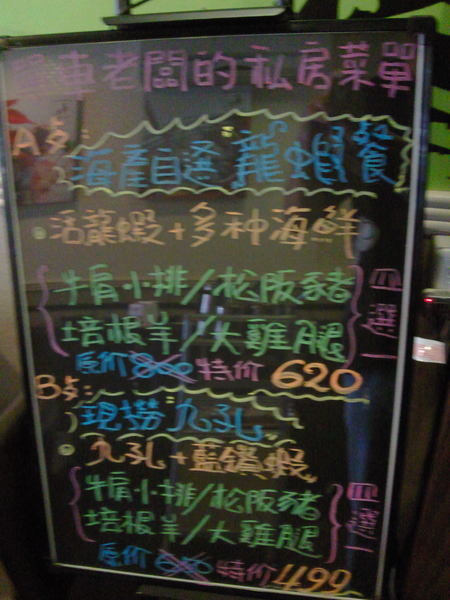 車老闆的私房菜單
A餐:
海產自選龍蝦餐
活龍蝦+多种海鮮
牛肩小排/松阪豬
培根羊/大雞腿
四選一
原价800特价620
B餐:
現撈九孔
九孔+藍鎖蝦
牛肩小排/松阪豬
培根羊/大雞腿
四選一
原价680特价499